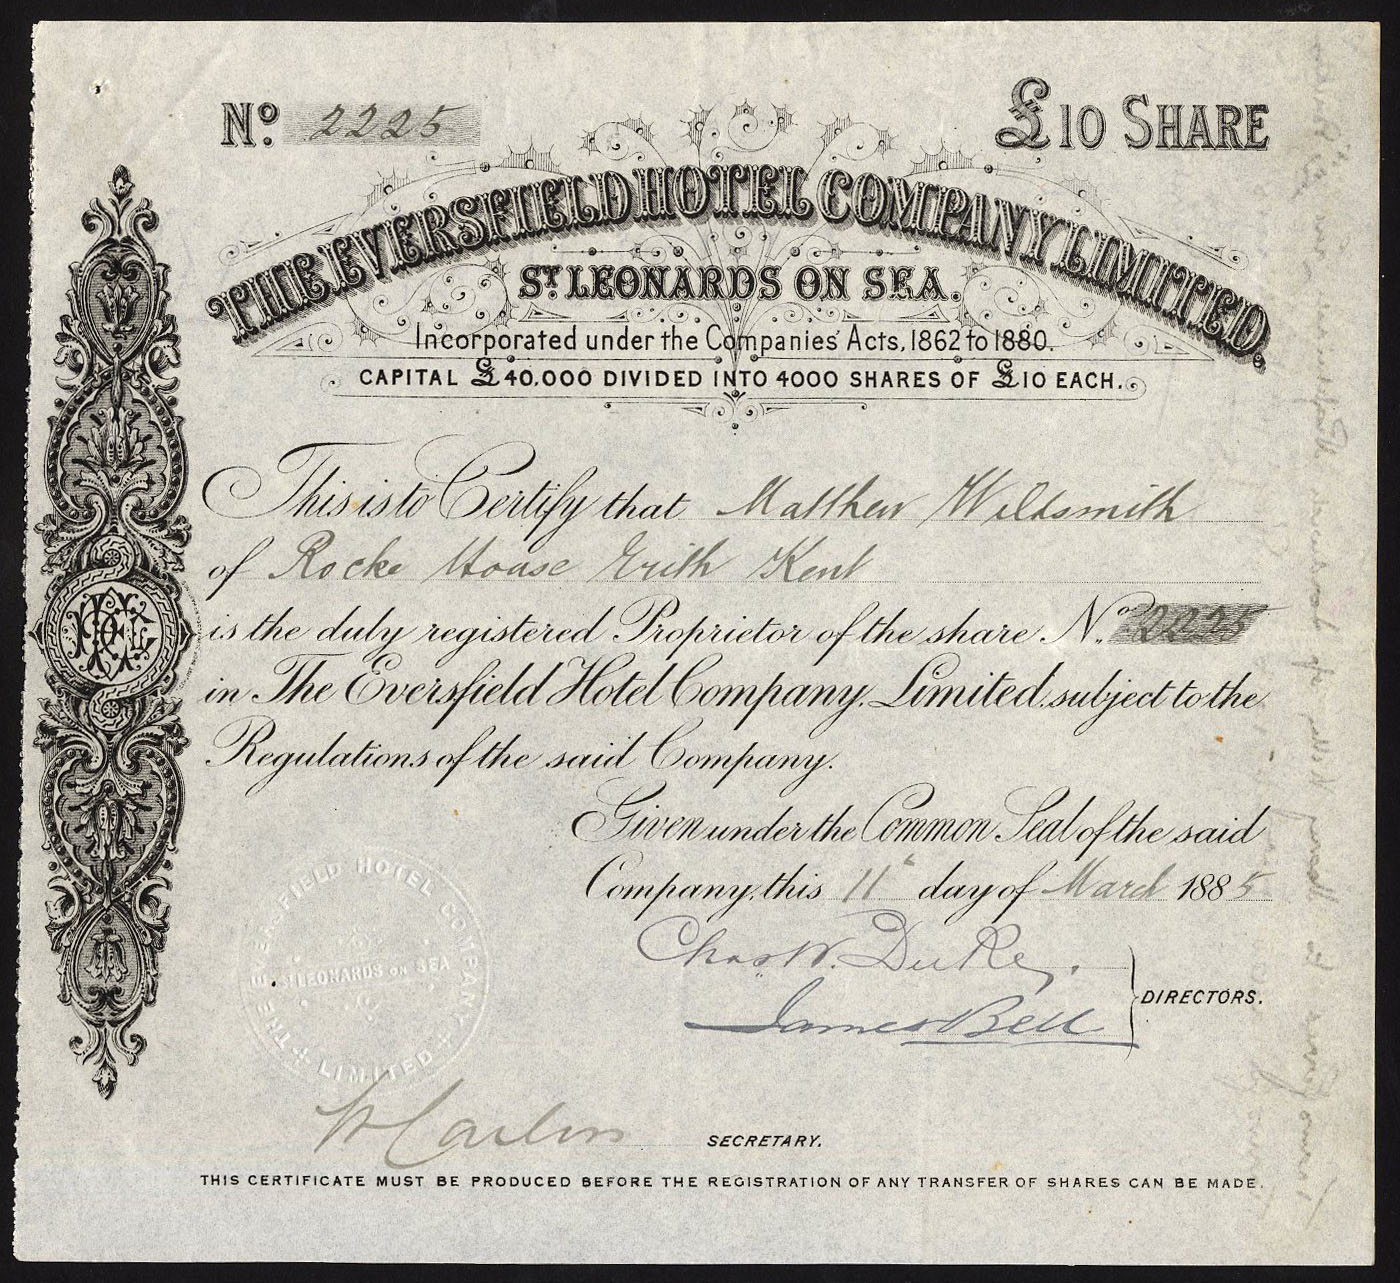 No. 2225
£10 SHARE
THE EVERSFIELD HOTEL COMPANY LIMITED,
ST. LEONARDS ON SEA.
Incorporated under the Companies' Acts, 1862 to 1880.
CAPITAL £40,000 DIVIDED INTO 4000 SHARES OF £10 EACH.
This is to Certify that Matthew Wildsmith
of Rocke House Erith Kent
is the duly registered Proprietor of the share No. 2225
in The Eversfield Hotel Company, Limited, subject to the
Regulations of the said Company.
Given under the Common Seal of the said
Company, this 11th day of March 1885
Chas W. Duke,
James Bell
DIRECTORS.
THE EVERSFIELD HOTEL COMPANY LIMITED
ST LEONARDS ON SEA
SECRETARY.
THIS CERTIFICATE MUST BE PRODUCED BEFORE THE REGISTRATION OF ANY TRANSFER OF SHARES CAN BE MADE.